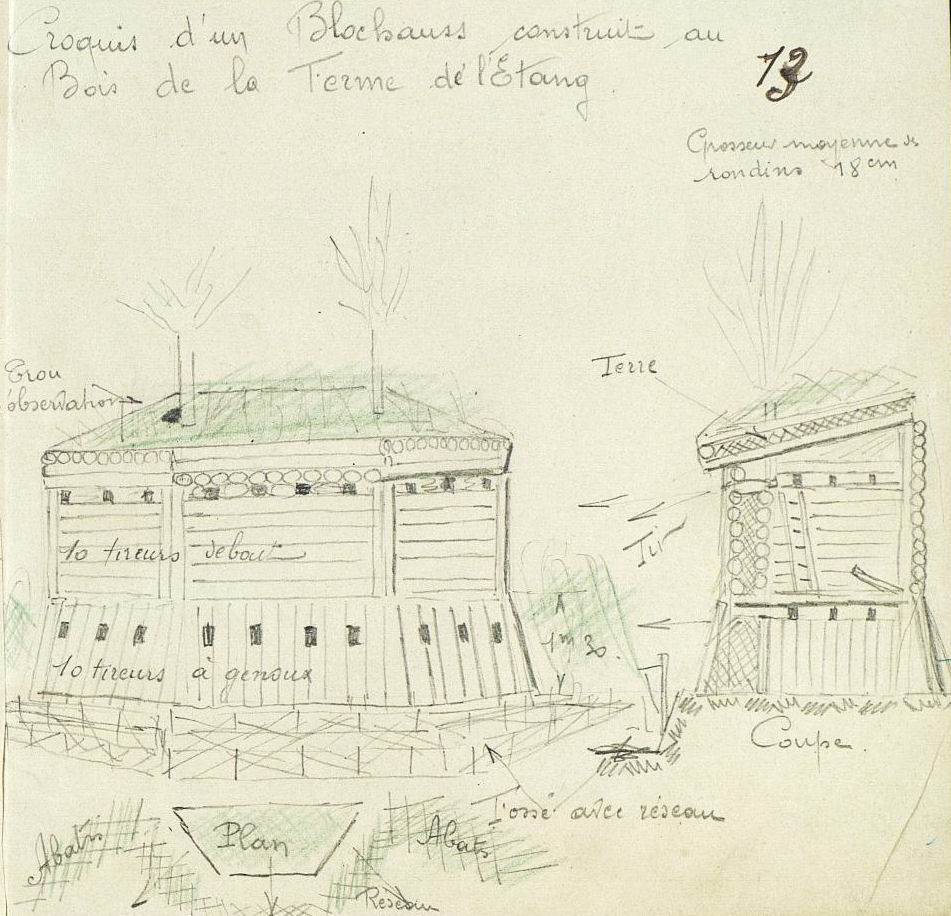 Croquis d'un Blochauss construit au
Bois de la Ferme de l'Etang
13
Grosseur moyenne de
rondins 18 cm
Trou
observation
Terre
Tir
10 tireurs debout
1m30.
10 tireurs à genoux
Coupe.
Fossé avec réseau
Abatis
Plan
Abatis
Réseau